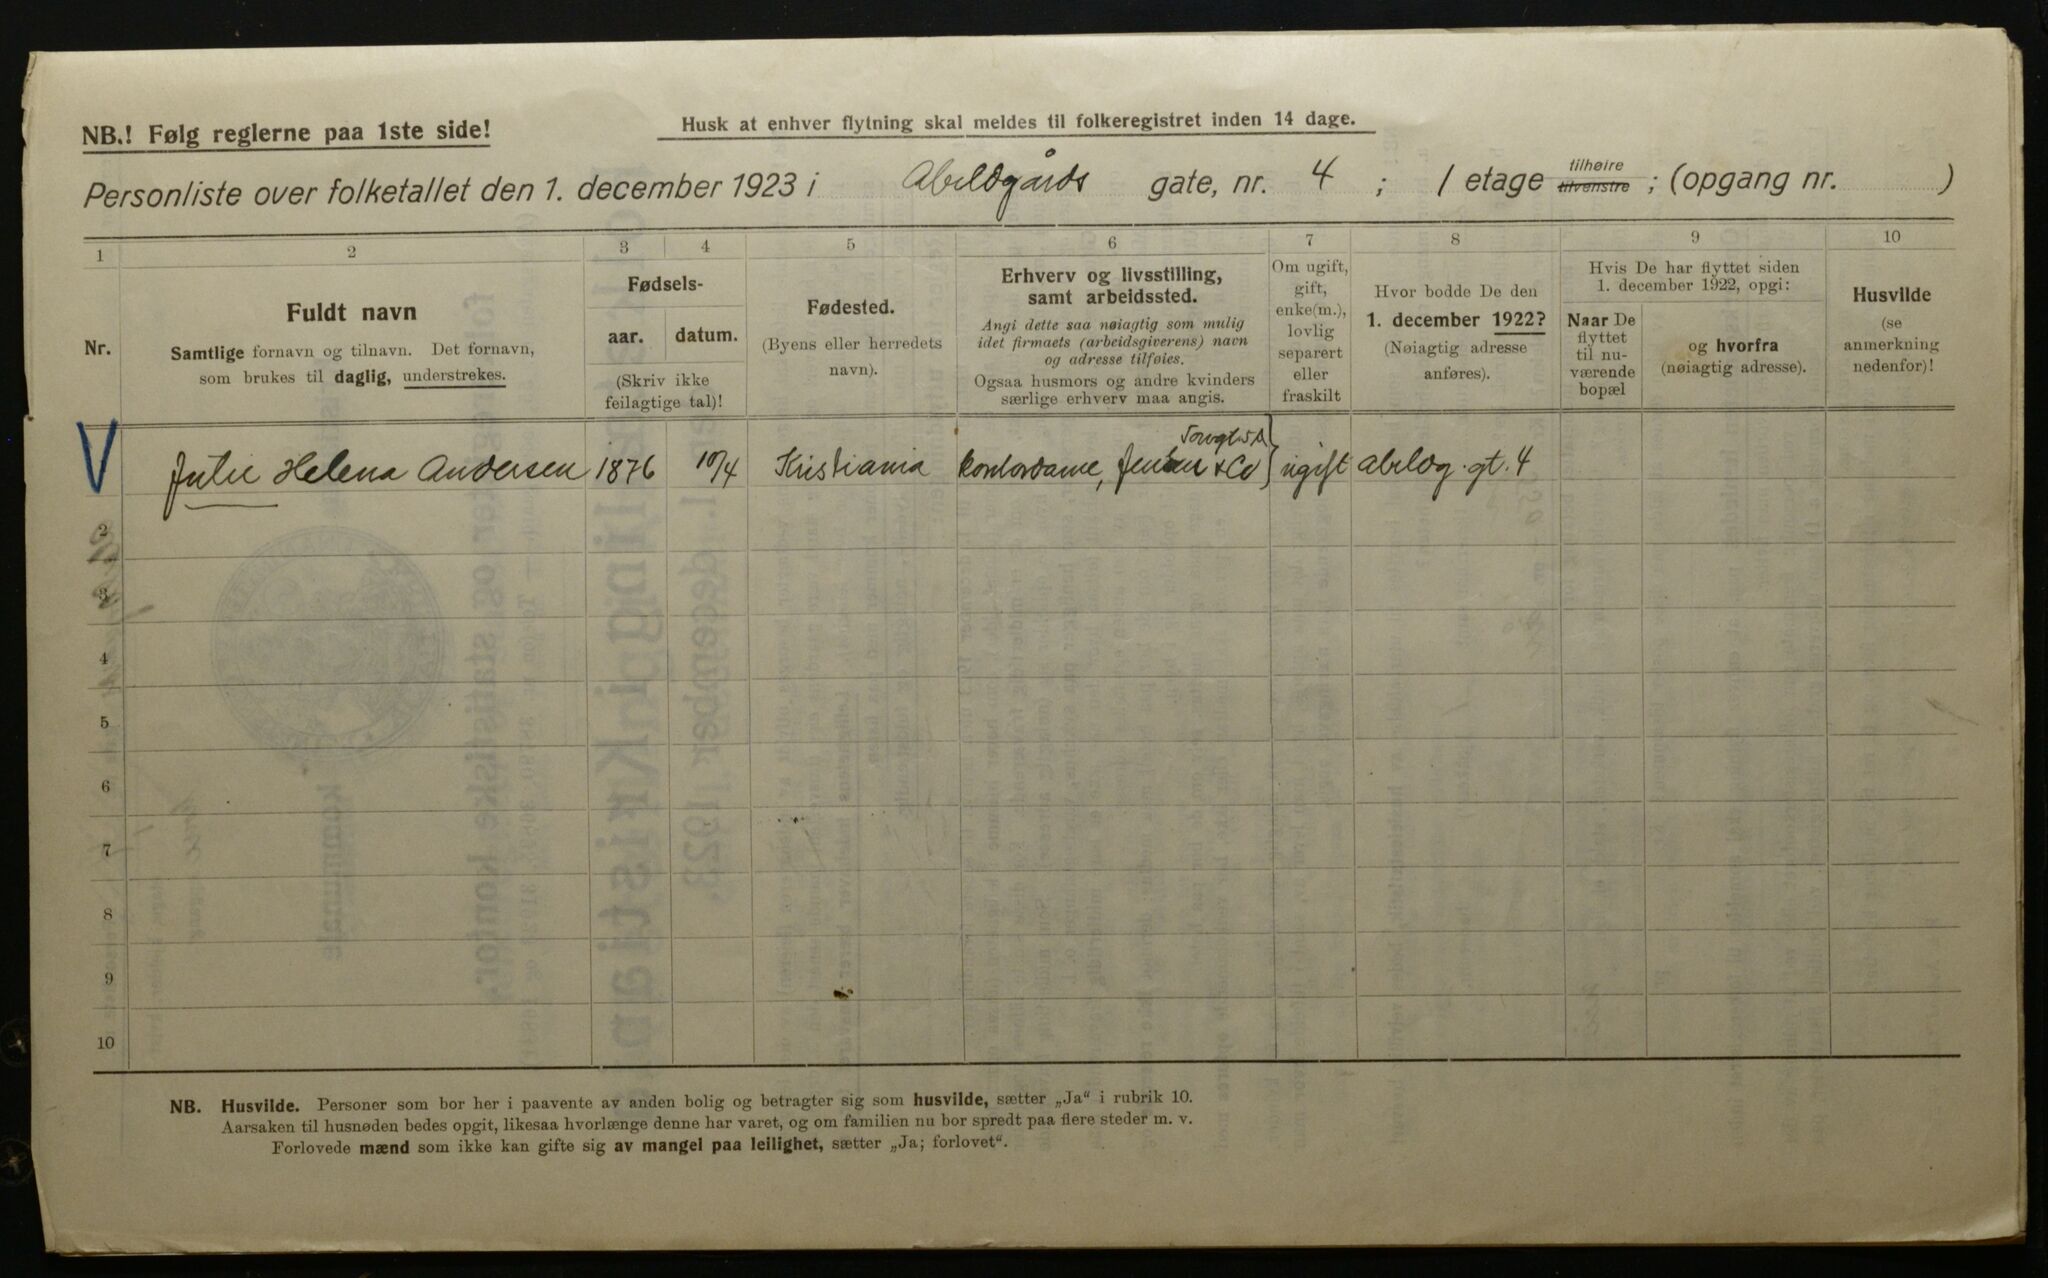 NB.! Følg reglerne paa 1ste side!
Husk at enhver flytning skal meldes til folkeregistret inden 14 dage.
Personliste over folketallet den 1. december 1923 i Abildgårds gate, nr. 4 ; 1 etage tilhøire tilvenstre ; (opgang nr. )
1 2 3 4 5 6 7 8 9 10
Nr.
Fuldt navn
Samtlige fornavn og tilnavn. Det fornavn,
som brukes til daglig, understrekes.
Fødsels-
aar. datum.
(Skriv ikke
feilagtige tal)!
Fødested.
(Byens eller herredets
navn).
Erhverv og livsstilling,
samt arbeidssted.
Angi dette saa nøiagtig som mulig
idet firmaets (arbeidsgiverens) navn
og adresse tilføies.
Ogsaa husmors og andre kvinders
særlige erhverv maa angis.
Om ugift,
gift,
enke(m.),
lovlig
separert
eller
fraskilt
Hvor bodde De den
1. december 1922?
(Nøiagtig adresse
anføres).
Hvis De har flyttet siden
1. december 1922, opgi:
Naar De
flyttet
til nu-
værende
bopæl
og hvorfra
(nøiagtig adresse).
Husvilde
(se
anmerkning
nedenfor)!
V Julie Helena Andersen 1876 10/4 Kristiania kontordame, Jensen & Co ugift Abildg. gt. 4
2
3
4
5
6
7
8
9
10
NB. Husvilde. Personer som bor her i paavente av anden bolig og betragter sig som husvilde, sætter „Ja" i rubrik 10.
Aarsaken til husnøden bedes opgit, likesaa hvorlænge denne har varet, og om familien nu bor spredt paa flere steder m. v.
Forlovede mænd som ikke kan gifte sig av mangel paa leilighet, sætter „Ja; forlovet".